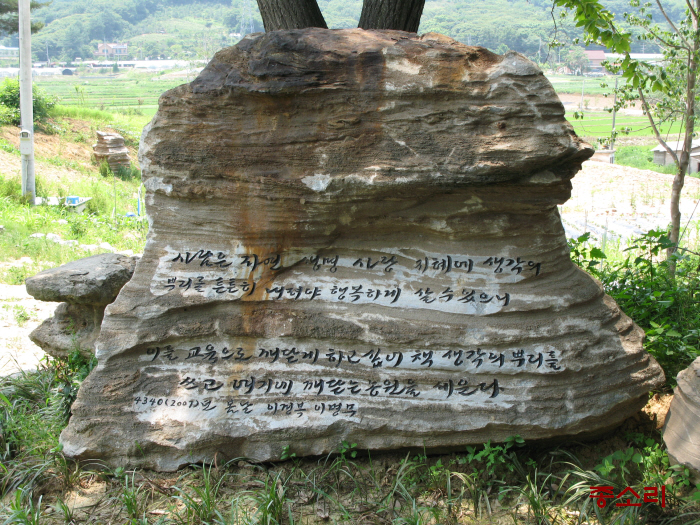 사람은 자연 생명 사랑 지혜에 생각의
뿌리를 튼튼히 내려야 행복하게 살 수 있으니
이를 교육으로 깨닫게 하고 싶어 책 생각의 뿌리를
쓰고 여기에 깨닫는 농원을 세운다
4340(2007)년 봄날 이경복 이명무
좋소리